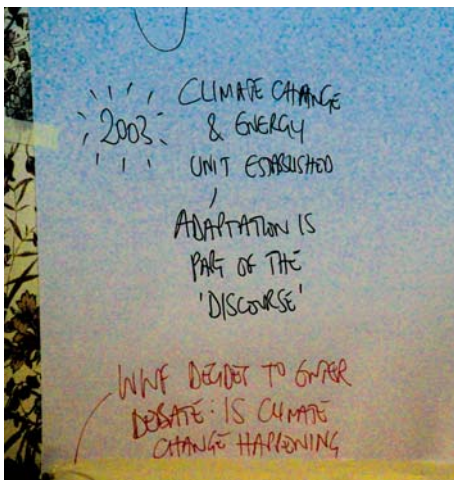 2003
CLIMATE CHANGE
& ENERGY
UNIT ESTABLISHED
ADAPTATION IS
PART OF THE
'DISCOURSE'
WWF DECIDES TO ENTER
DEBATE: IS CLIMATE
CHANGE HAPPENING